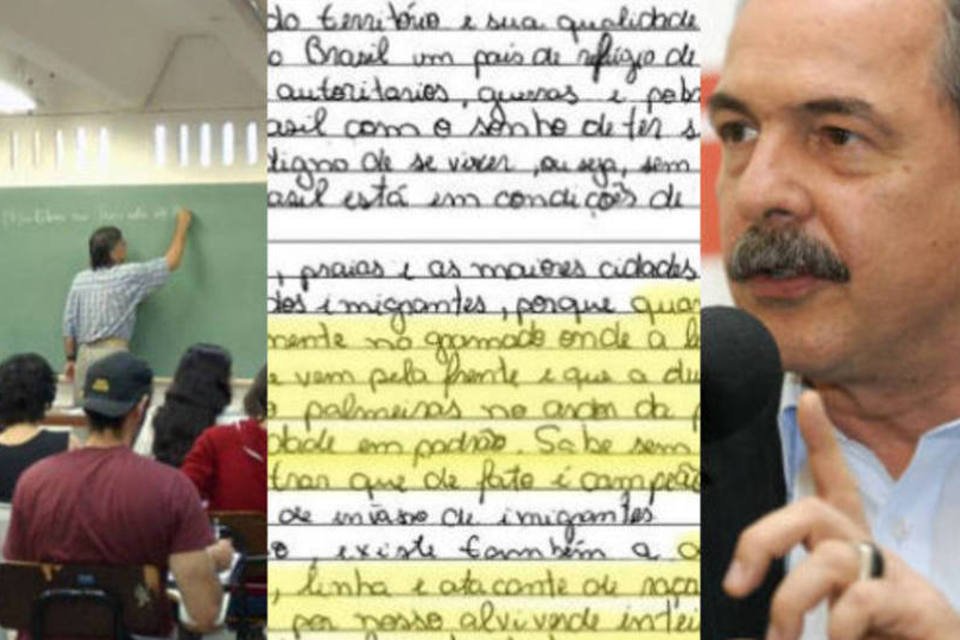 do território e sua qualidade
o Brasil um país de refúgio de
autoritarios, gueras e pob
asil com o sonho de ter s
digno de se viver, ou seja, sem
asil está em condições de
, praias e as maiores cidades
dos imigrantes, porque quan
mente no gramado onde a l
e vem pela frente e que a du
o palmeiras no ardor da p
dade em padrão. Sabe sem
trar que de fato é campeão
de invasão de imigrantes
o, existe também a
, linha e atacante de raça
por nosso alviverde intei